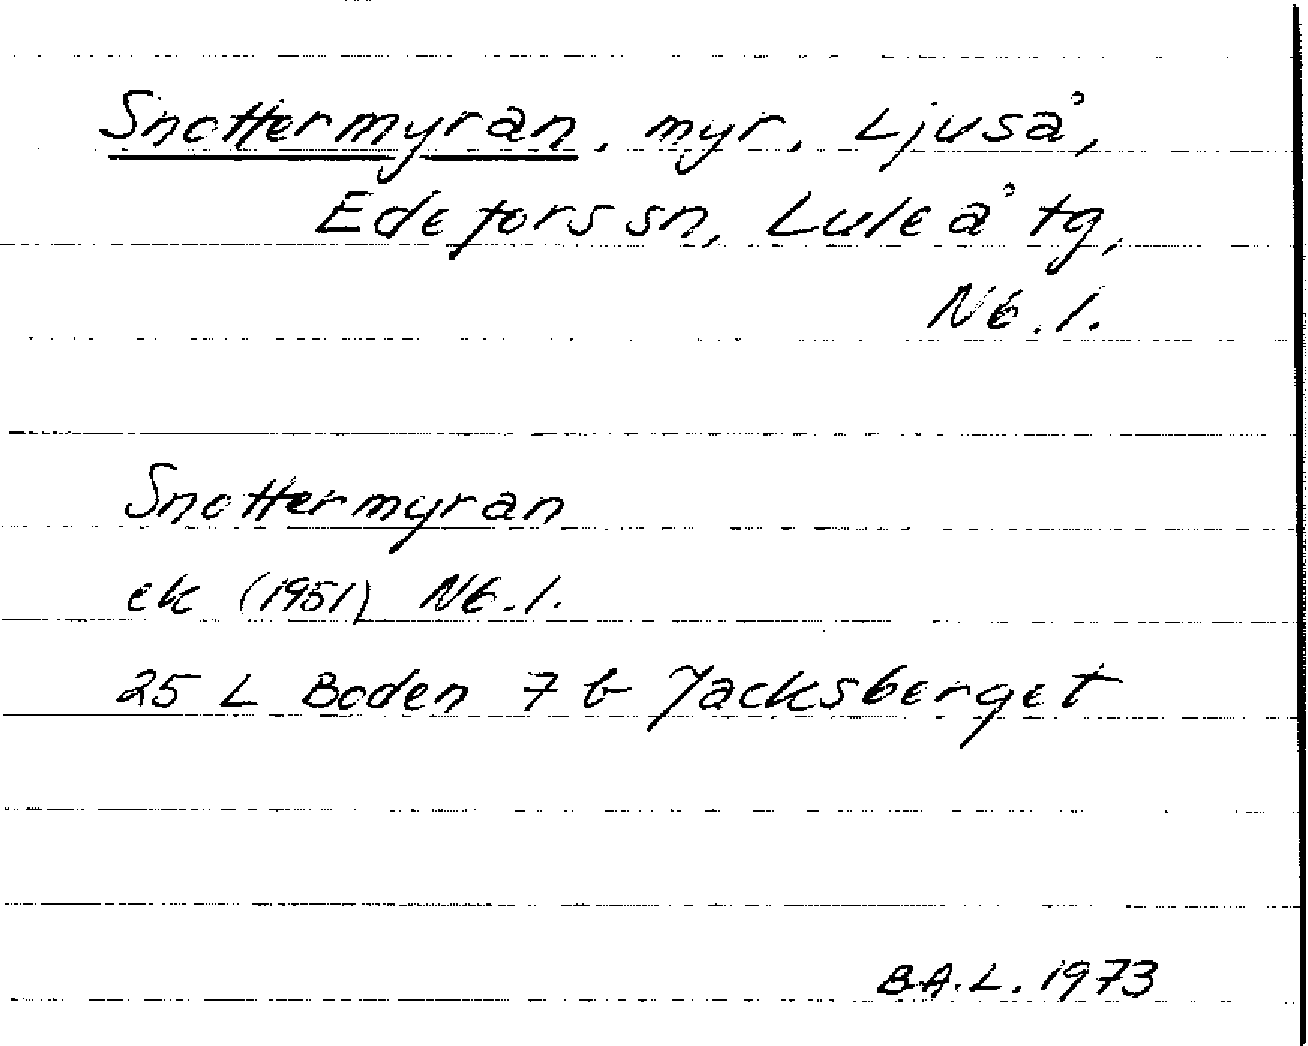 Snottermyran, myr, Ljuså,
Edefors sn, Luleå tg,
Nb. l.
Snottermyran
ek (1951) Nb. l.
25 L Boden 7 b Jacksberget
B.A.L. 1973